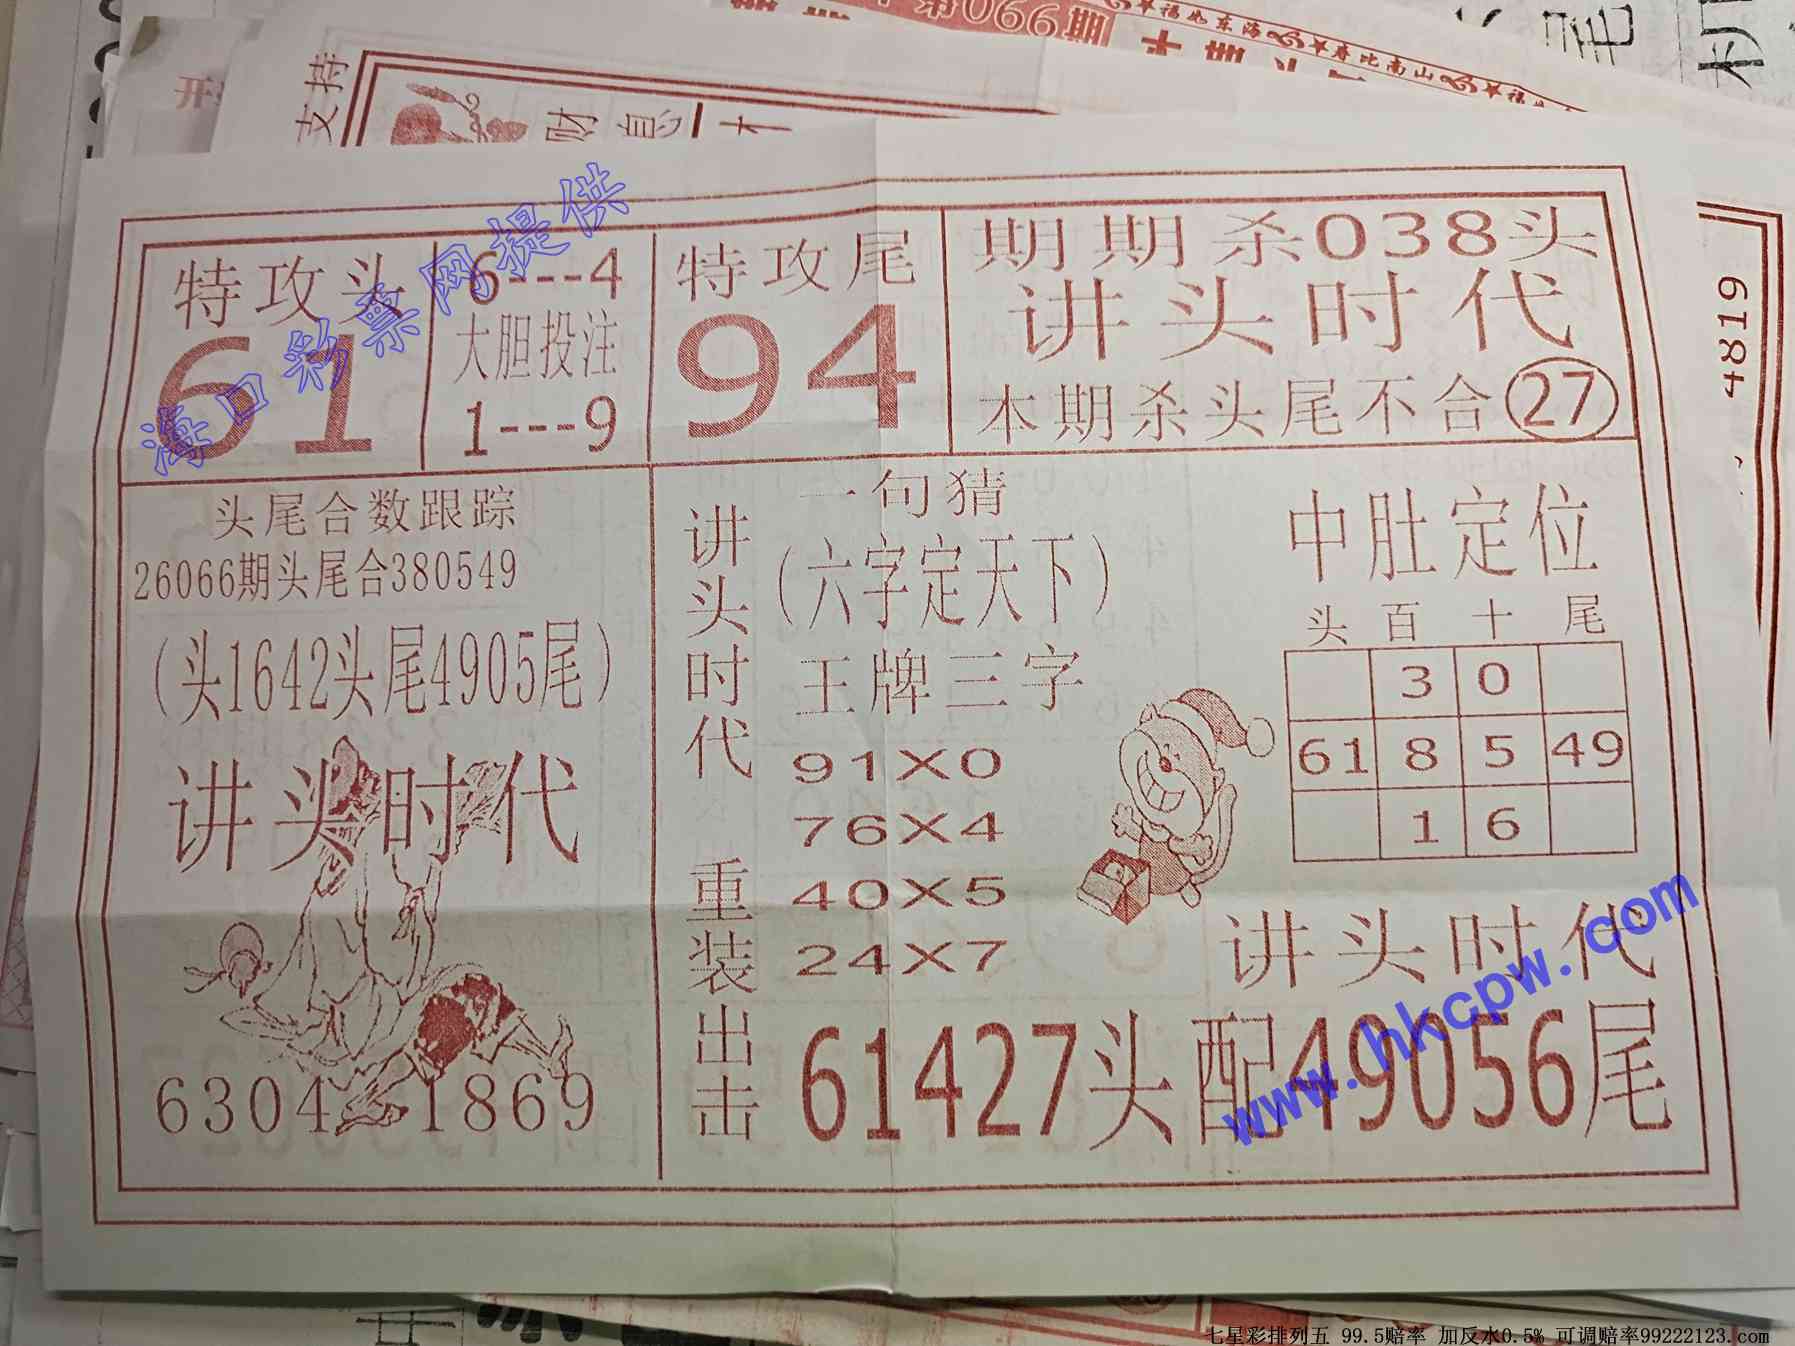 第066期
福如东海
寿比南山
支持
财息
4819
特攻头
61
6---4
大胆投注
1---9
特攻尾
94
期期杀038头
讲头时代
本期杀头尾不合27
头尾合数跟踪
26066期头尾合380549
(头1642头尾4905尾)
讲头时代
6304 1869
讲头时代
重装出击
一句猜
(六字定天下)
王牌三字
91X0
76X4
40X5
24X7
中肚定位
头 百 十 尾
3 0
61 8 5 49
1 6
讲头时代
61427头配49056尾
海口彩票网提供
www.hkcpw.com
七星彩排列五 99.5赔率 加反水0.5% 可调赔率99222123.com